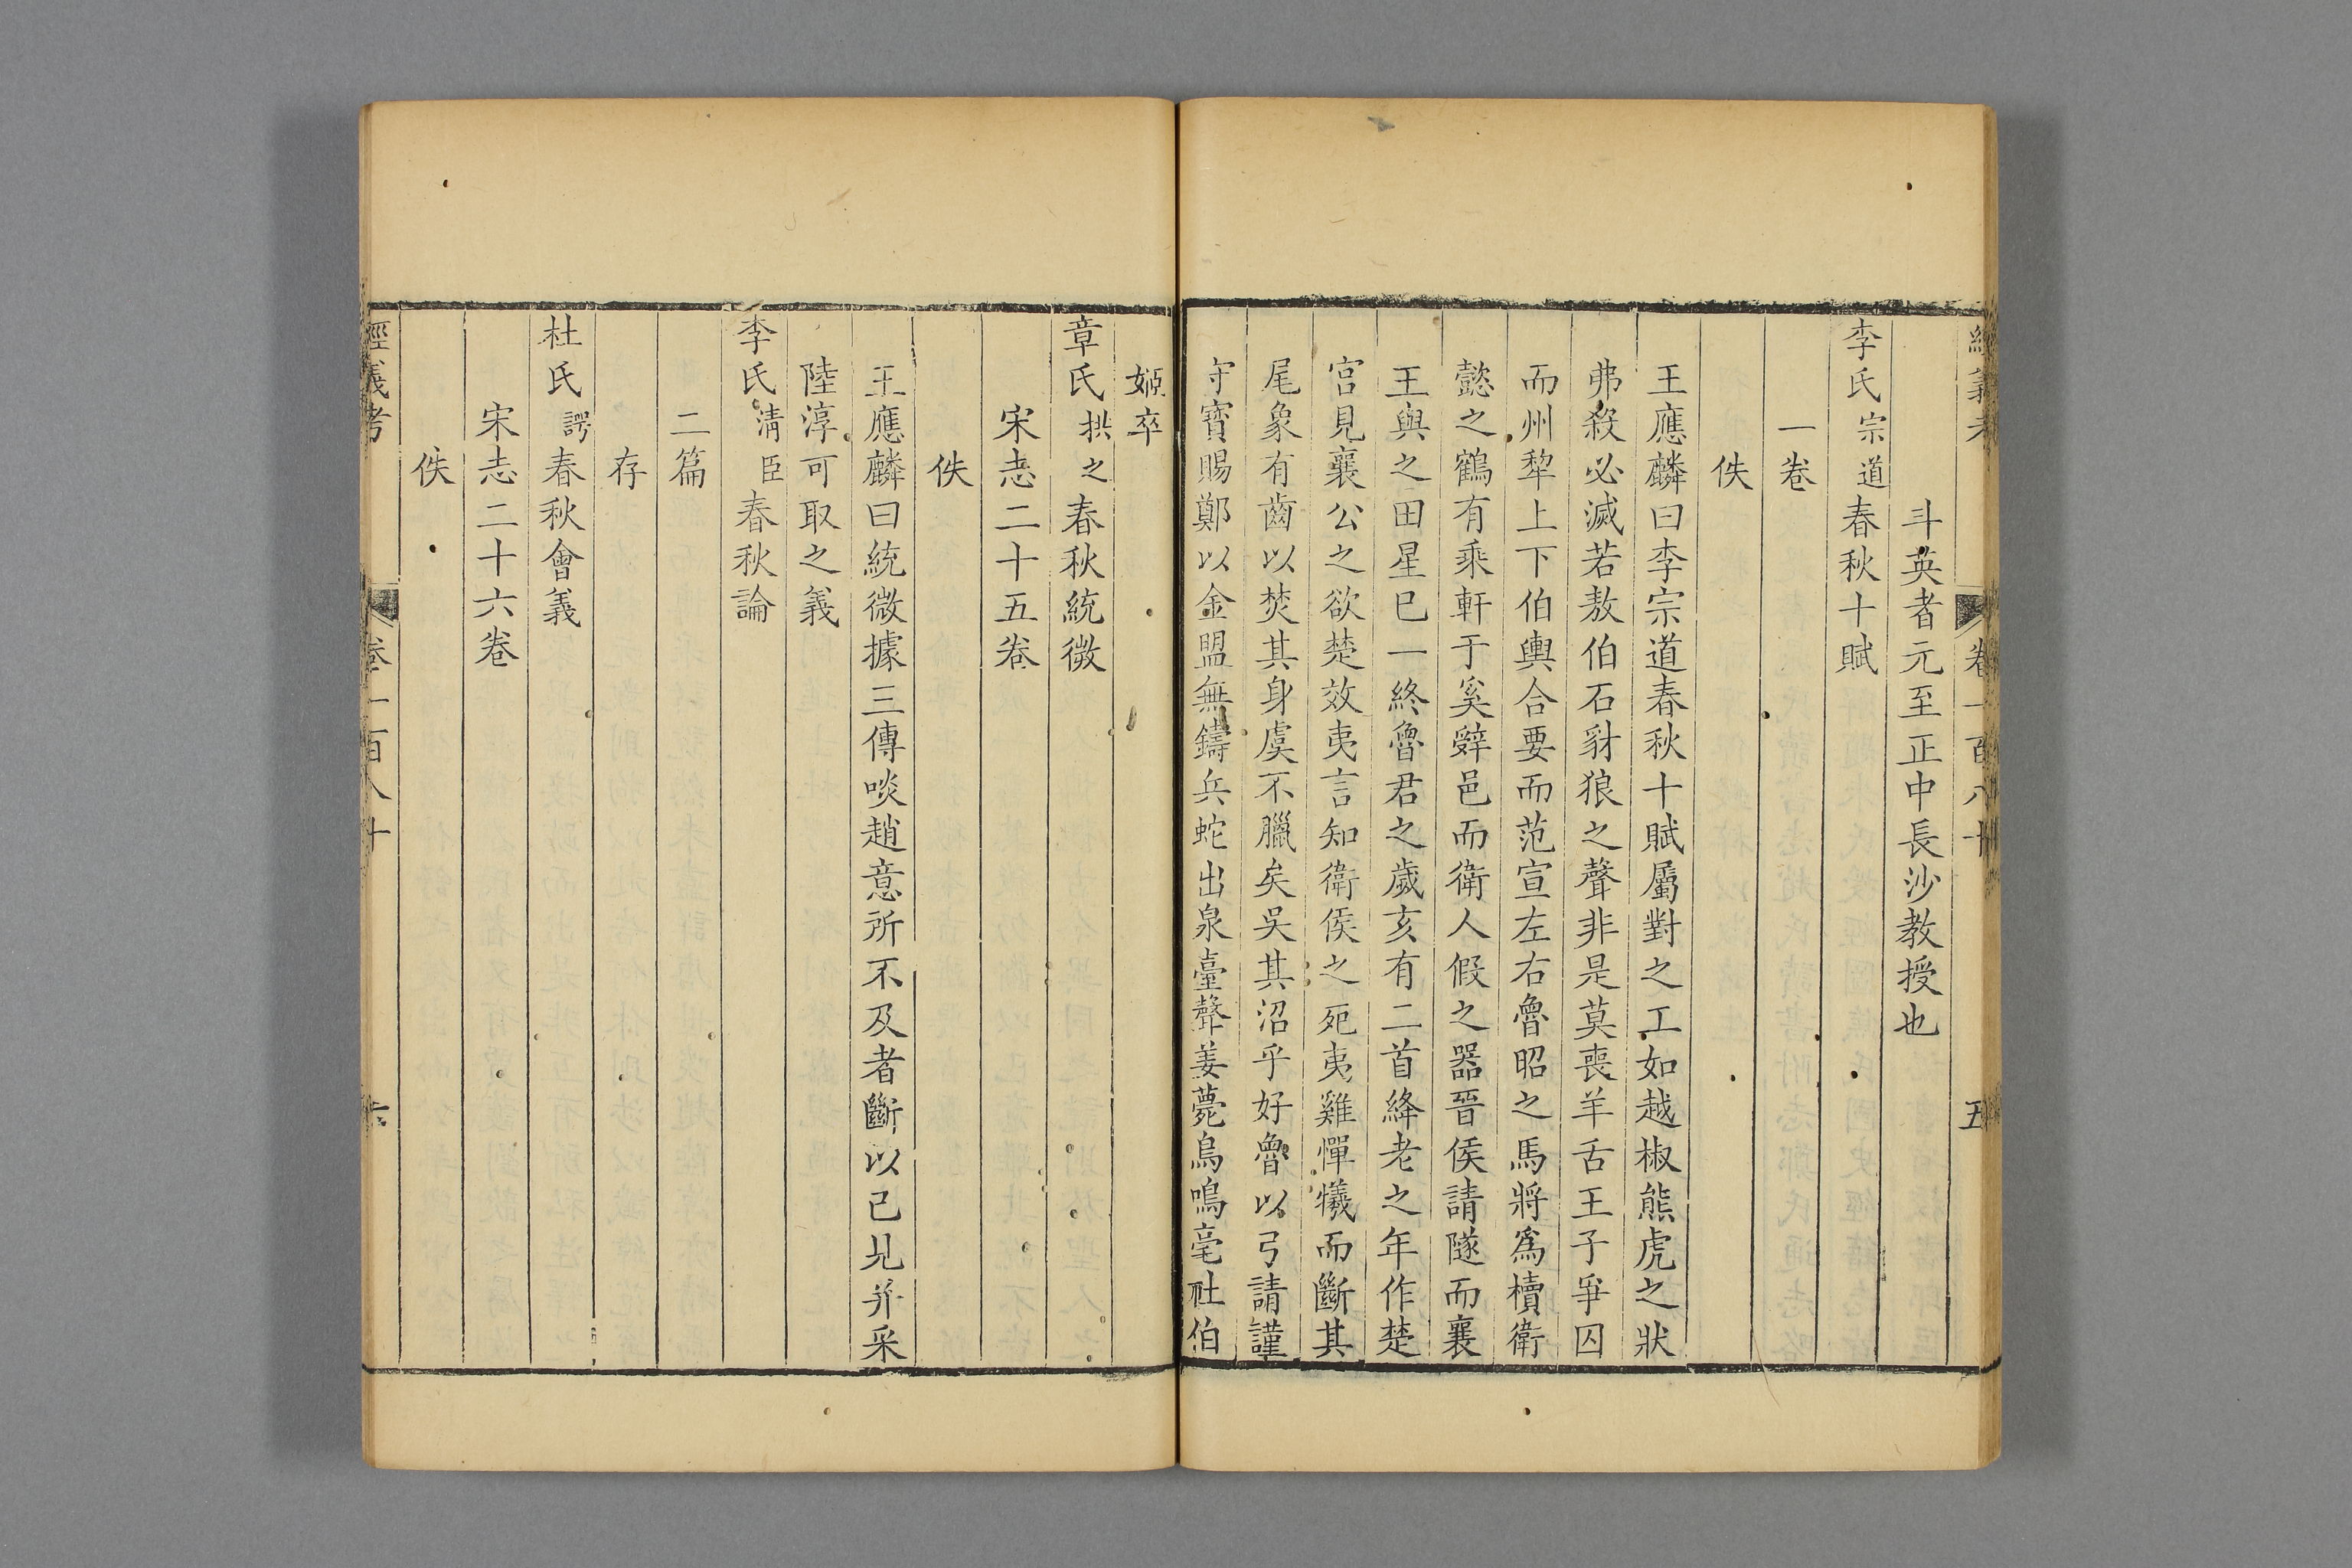 經義考 卷一百八十 五
斗英者元至正中長沙教授也
李氏宗道春秋十賦
一卷
佚
王應麟曰李宗道春秋十賦屬對之工如越椒熊虎之狀
弗殺必滅若敖伯石豺狼之聲非是莫喪羊舌王子爭囚
而州犂上下伯輿合要而范宣左右魯昭之馬將爲櫝衛
懿之鶴有乘軒于奚辭邑而衛人假之器晉侯請隧而襄
王與之田星巳一終魯君之歲亥有二首絳老之年作楚
宮見襄公之欲楚效夷言知衛侯之死夷雞憚犧而斷其
尾象有齒以焚其身虞不臘矣吳其沼乎好魯以弓請謹
守寳賜鄭以金盟無鑄兵蛇出泉臺聲姜薨鳥鳴亳社伯
姬卒
章氏拱之春秋統微
宋志二十五卷
佚
王應麟曰統微據三傳啖趙意所不及者斷以己見并采
陸淳可取之義
李氏淸臣春秋論
二篇
存
杜氏諤春秋會義
宋志二十六卷
佚
經義考 卷一百八十 六